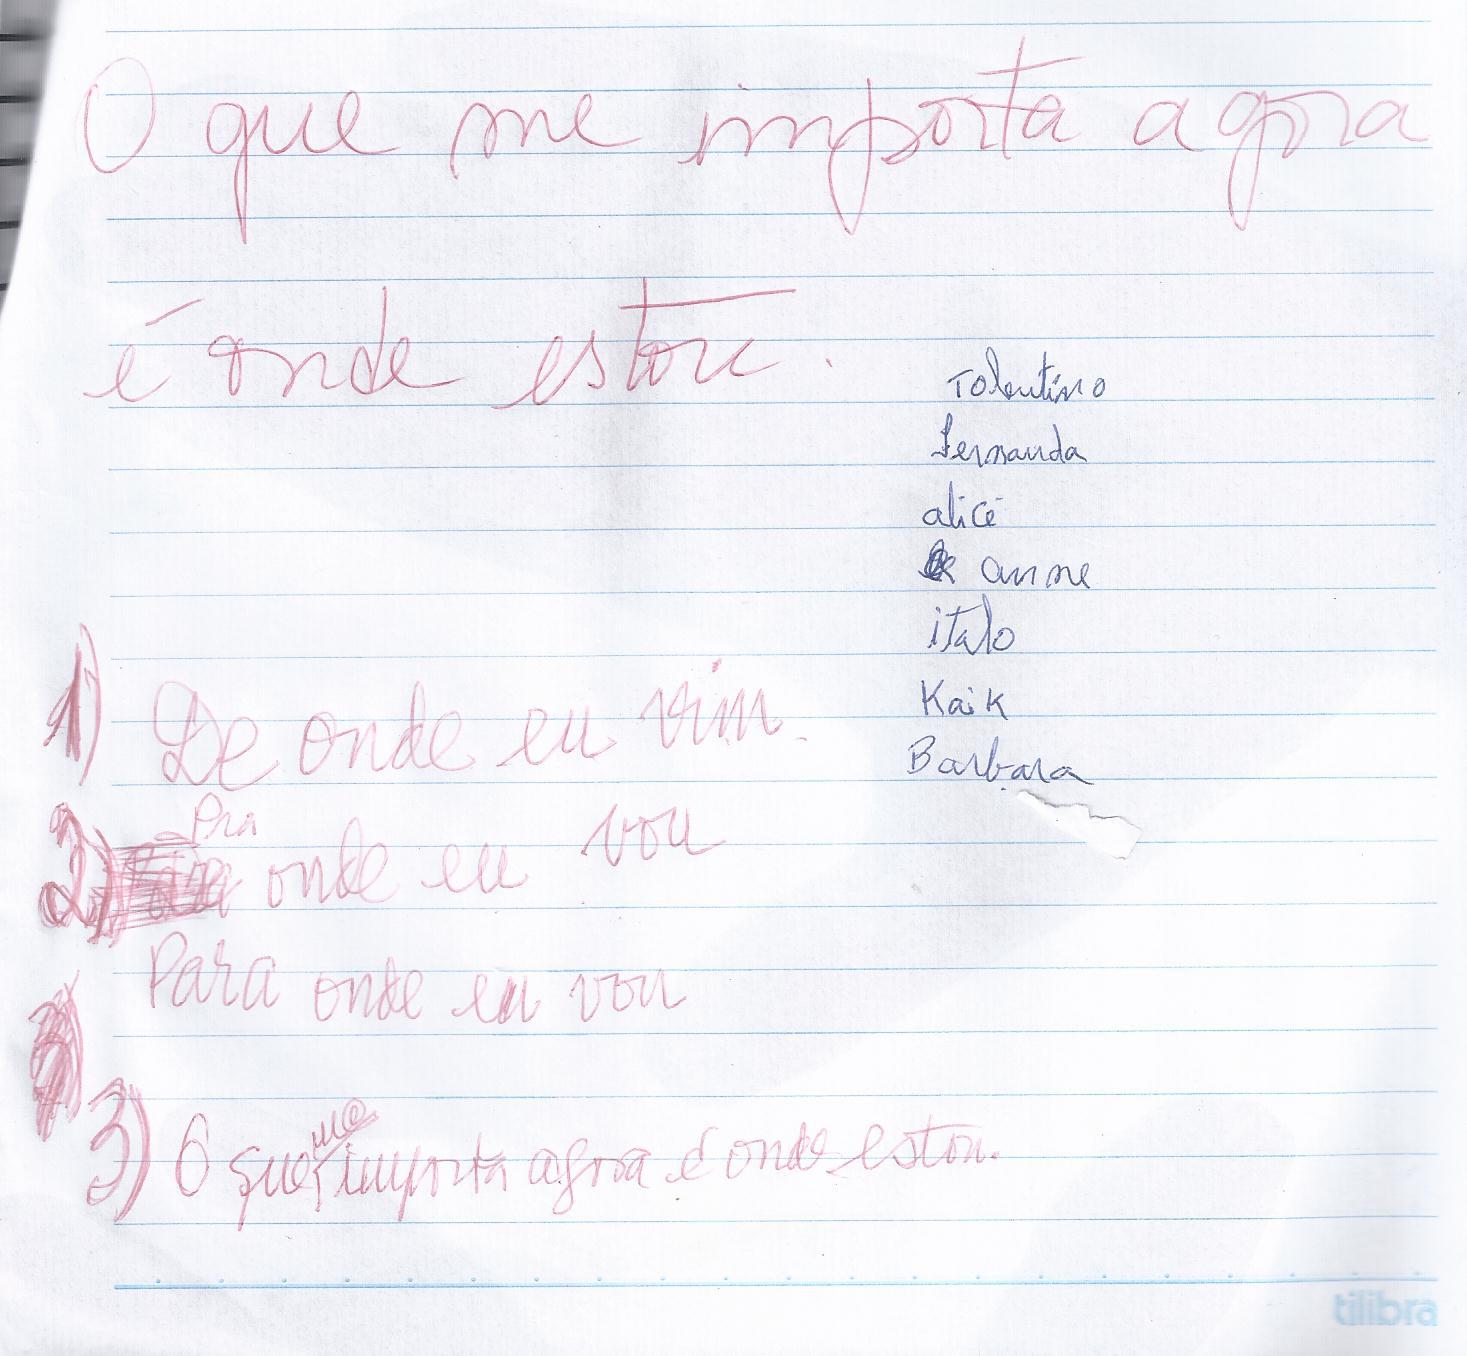 O que me importa agora
é onde estou.
Tolentino
Fernanda
alice
anne
italo
Kaik
Barbara
1) De onde eu vim.
Pra
2) onde eu vou
Para onde eu vou
me
3) O que importa agora é onde estou.
tilibra